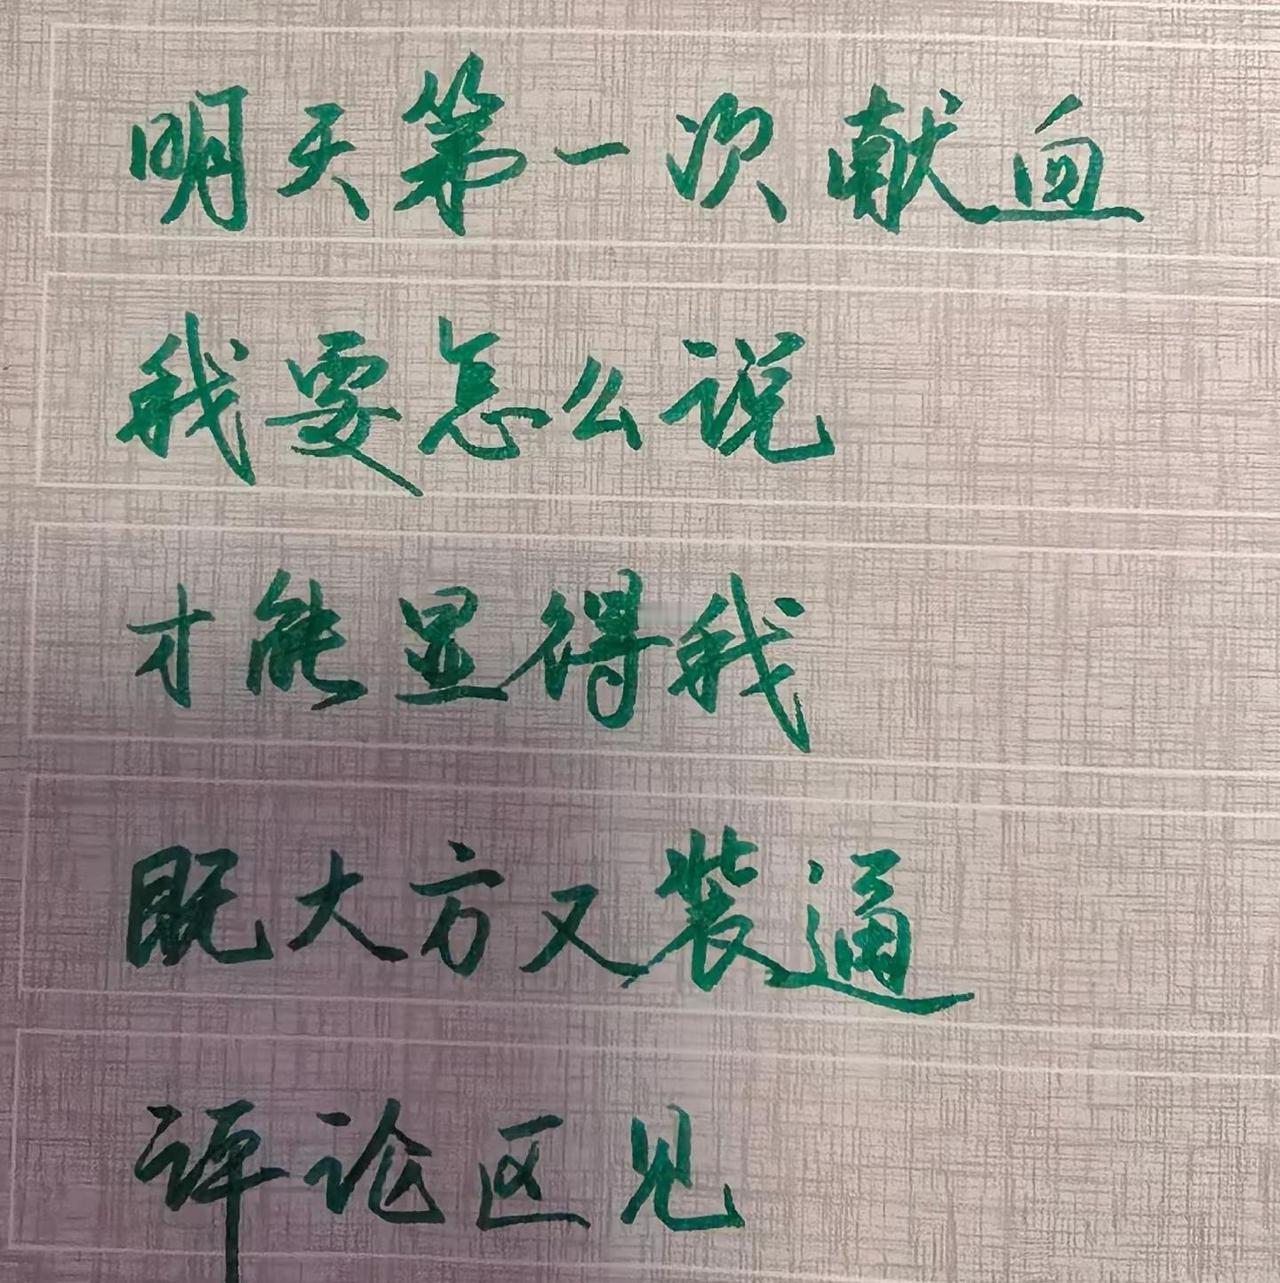 明天第一次献血
我要怎么说
才能显得我
既大方又装逼
评论区见